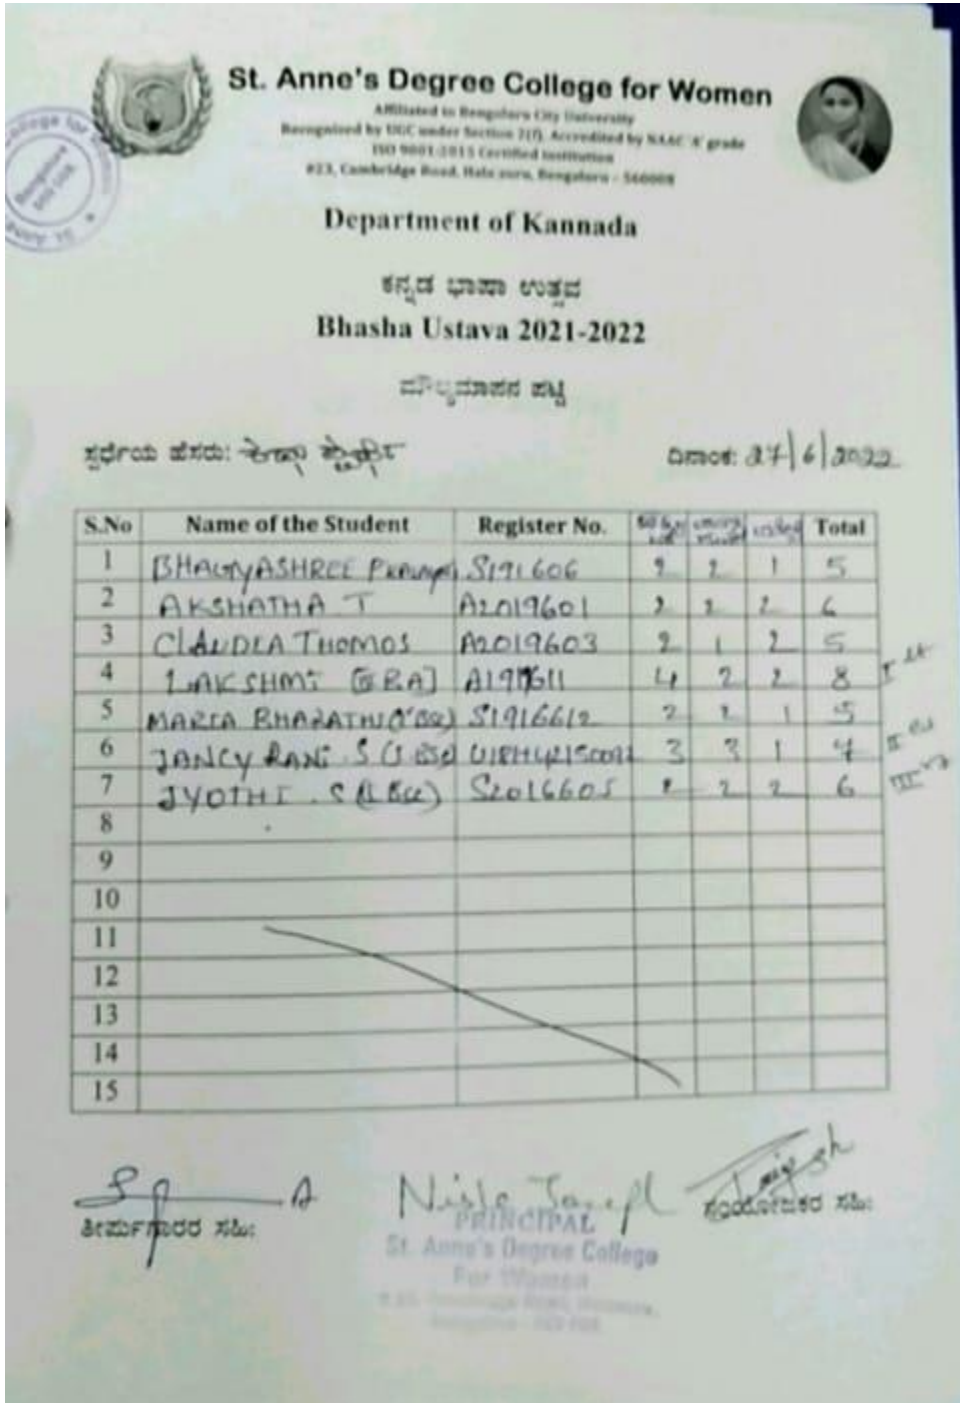 St. Anne's Degree College for Women
Affiliated to Bengaluru City University
Recognized by UGC under Section 2(f), Accredited by NAAC 'A' grade
ISO 9001:2015 Certified Institution
#23, Cambridge Road, Halasuru, Bengaluru - 560008
Department of Kannada
ಕನ್ನಡ ಭಾಷಾ ಉತ್ಸವ
Bhasha Ustava 2021-2022
ಮೌಲ್ಯಮಾಪನ ಪಟ್ಟಿ
ಸ್ಪರ್ಧೆಯ ಹೆಸರು:
ದಿನಾಂಕ: 27/6/2022
S.No Name of the Student Register No. Total
1 BHAGYASHREE S191606 2 2 1 5
2 AKSHATHA T A2019601 2 2 2 6
3 CLAUDIA THOMOS A2019603 2 1 2 5
4 LAKSHMI 4 2 2 8 I st
5 MARIA BHARATHI S1916612 2 2 1 5
6 JANCY RANI . S 3 3 1 7 II
7 JYOTHI . S S2016605 2 2 2 6 III
8
9
10
11
12
13
14
15
ತೀರ್ಪುಗಾರರ ಸಹಿ:
PRINCIPAL
St. Anne's Degree College
For Women
ಸಂಯೋಜಕರ ಸಹಿ: